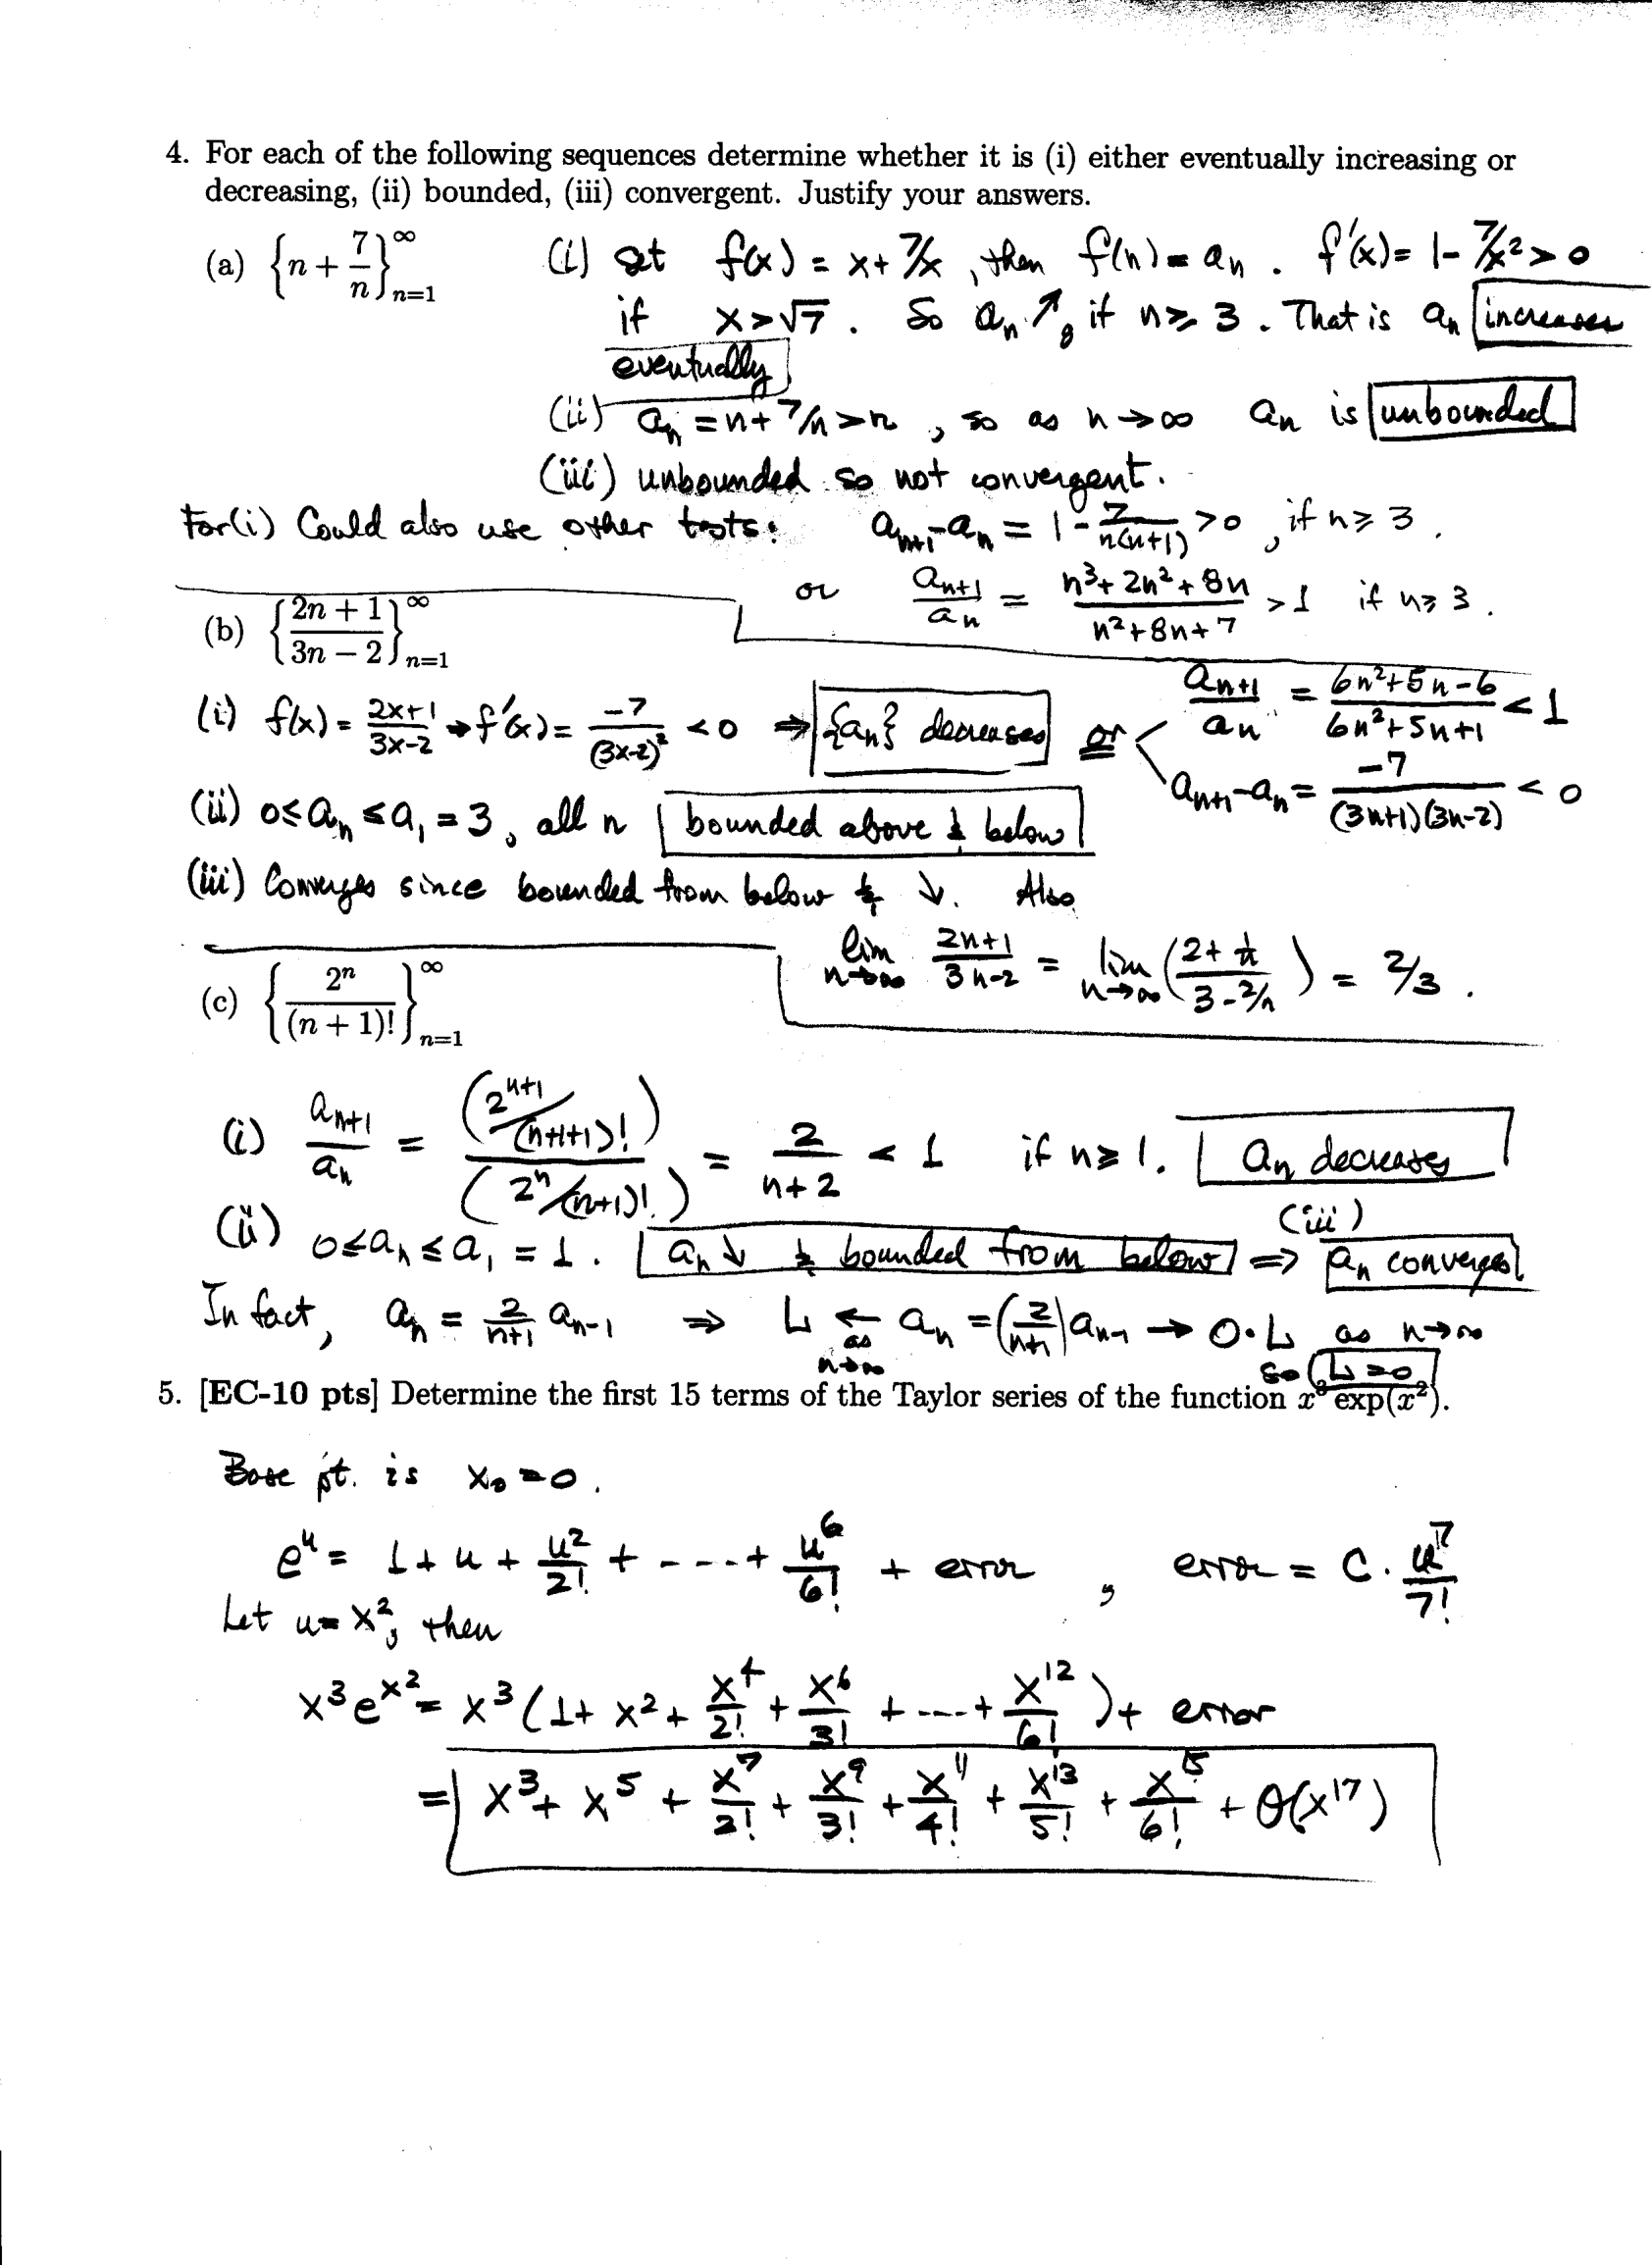 4. For each of the following sequences determine whether it is (i) either eventually increasing or
decreasing, (ii) bounded, (iii) convergent. Justify your answers.
(a) {n + 7/n}_{n=1}^∞ (i) set f(x) = x + 7/x, then f(n) = a_n. f'(x) = 1 - 7/x² > 0
if x > √7. So a_n ↗, if n ≥ 3. That is a_n increases
eventually
(ii) a_n = n + 7/n > n, so as n → ∞ a_n is unbounded
(iii) unbounded so not convergent.
For (i) Could also use other tests: a_{n+1} - a_n = 1 - 7/(n(n+1)) > 0, if n ≥ 3.
or a_{n+1}/a_n = (n³ + 2n² + 8n)/(n² + 8n + 7) > 1 if n ≥ 3.
(b) {(2n + 1)/(3n − 2)}_{n=1}^∞
(i) f(x) = (2x+1)/(3x-2) → f'(x) = -7/(3x-2)² < 0 ⇒ {a_n} decreases or a_{n+1}/a_n = (6n²+5n-6)/(6n²+5n+1) < 1
a_{n+1} - a_n = -7/((3n+1)(3n-2)) < 0
(ii) 0 ≤ a_n ≤ a_1 = 3, all n bounded above & below
(iii) Converges since bounded from below & ↓. Also
lim_{n→∞} (2n+1)/(3n-2) = lim_{n→∞} ((2 + 1/n)/(3 - 2/n)) = 2/3.
(c) {2^n/(n + 1)!}_{n=1}^∞
(i) a_{n+1}/a_n = (2^{n+1}/(n+1+1)!)/(2^n/(n+1)!) = 2/(n+2) < 1 if n ≥ 1. a_n decreases
(ii) 0 ≤ a_n ≤ a_1 = 1. a_n ↓ & bounded from below ⇒ (iii) a_n converges
In fact, a_n = 2/(n+1) a_{n-1} ⇒ L ← as n→∞ a_n = (2/(n+1)) a_{n-1} → 0·L as n→∞
so L = 0
5. [EC-10 pts] Determine the first 15 terms of the Taylor series of the function x³ exp(x²).
Base pt. is x_0 = 0.
e^u = 1 + u + u²/2! + ----+ u⁶/6! + error, error = C · u⁷/7!
Let u = x², then
x³e^{x²} = x³(1 + x² + x⁴/2! + x⁶/3! + ---+ x¹²/6!) + error
= x³ + x⁵ + x⁷/2! + x⁹/3! + x¹¹/4! + x¹³/5! + x¹⁵/6! + O(x¹⁷)